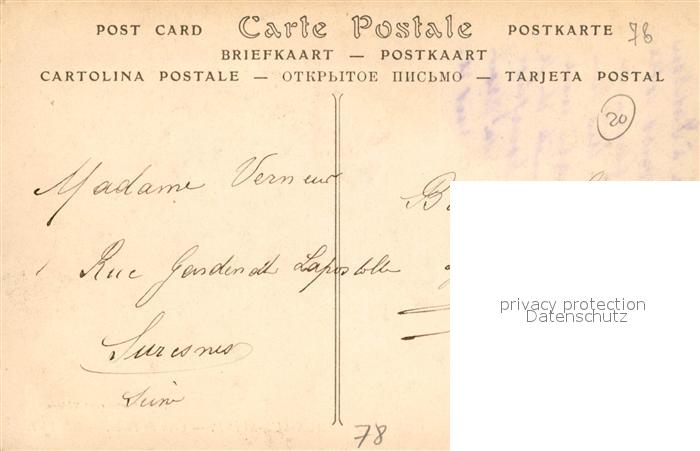 POST CARD Carte Postale POSTKARTE 78
BRIEFKAART — POSTKAART
CARTOLINA POSTALE — ОТКРЫТОЕ ПИСЬМО — TARJETA POSTAL
20
Madame Verneur
Rue Gardenat Lapostolle
Suresnes
Seine
78
privacy protection
Datenschutz